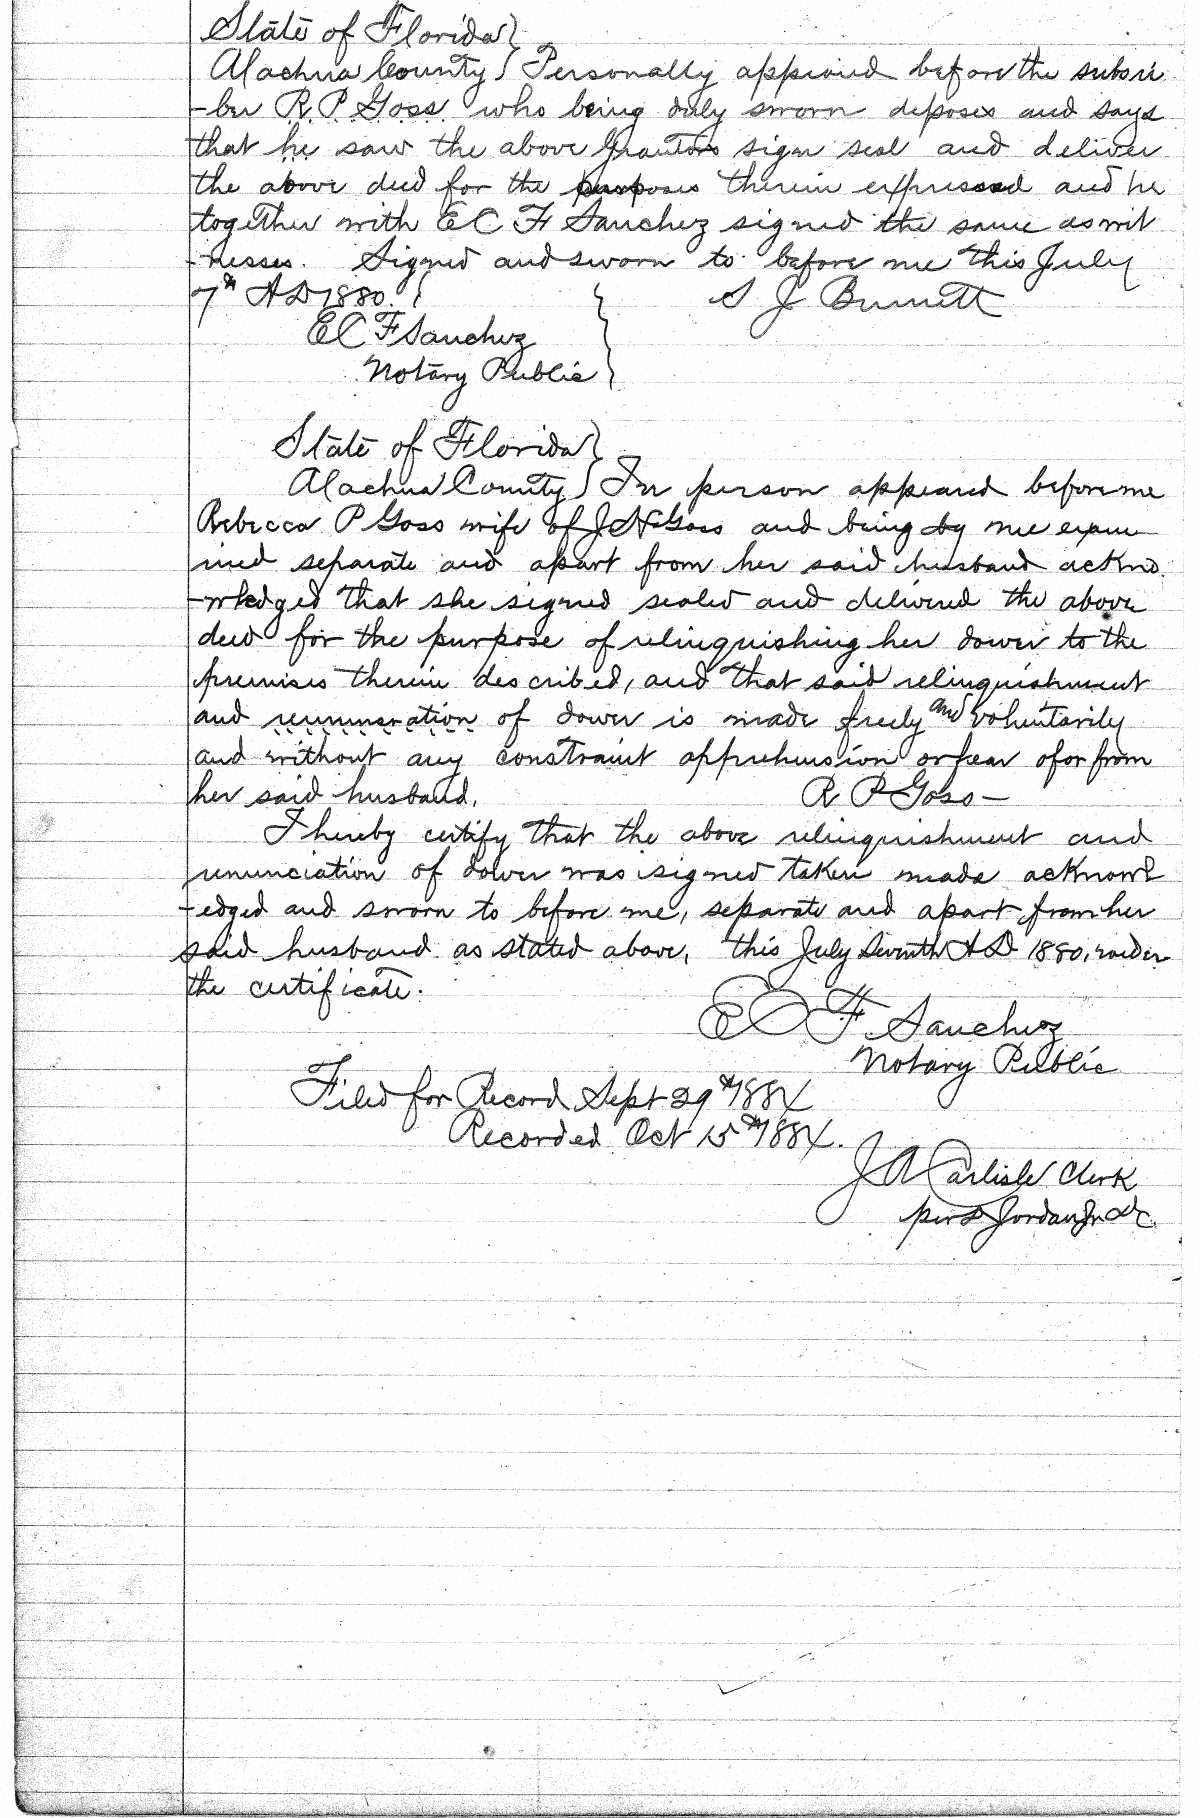 State of Florida }
Alachua County } Personally appeared before the subscri
-ber R. P. Goss who being duly sworn deposes and says
that he saw the above Grantors sign seal and deliver
the above deed for the purposes therein expressed and he
together with E C F Sanchez signed the same as wit
-nesses. Signed and sworn to before me this July
7th A D 1880. } S J Burnett
E C F Sanchez
Notary Public }
State of Florida }
Alachua County } In person appeared before me
Rebecca P Goss wife of J H Goss and being by me exam
ined separate and apart from her said husband ackno
-wledged that she signed sealed and delivered the above
deed for the purpose of relinquishing her dower to the
premises therein described, and that said relinquishment
and remuneration of dower is made freely and voluntarily
and without any constraint apprehension or fear of or from
her said husband. R P Goss —
I hereby certify that the above relinquishment and
renunciation of dower was signed taken made acknowl
-edged and sworn to before me, separate and apart from her
said husband as stated above, this July Seventh A D 1880,
the certificate.
E C F Sanchez
Notary Public
Filed for Record Sept 29th 1884
Recorded Oct 15th 1884.
J A Carlisle Clerk
per Jordan Jr D C.